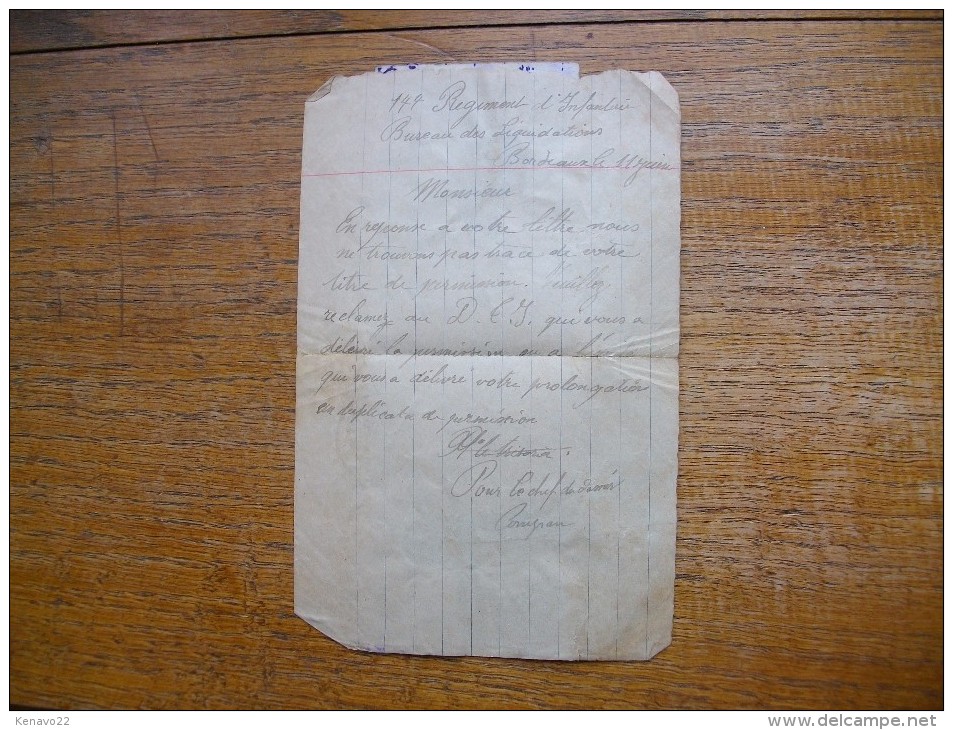 144 Regiment d'Infanterie
Bureau des Liquidations
Bordeaux le 11 juin
Monsieur
En reponse a votre lettre nous
ne trouvons pas trace de votre
titre de permission. Veuillez
reclamez au D. qui vous a
délivré la permission ou a
qui vous a délivré votre prolongation
en duplicata de permission
Pour le chef de
Kenavo22
www.delcampe.net